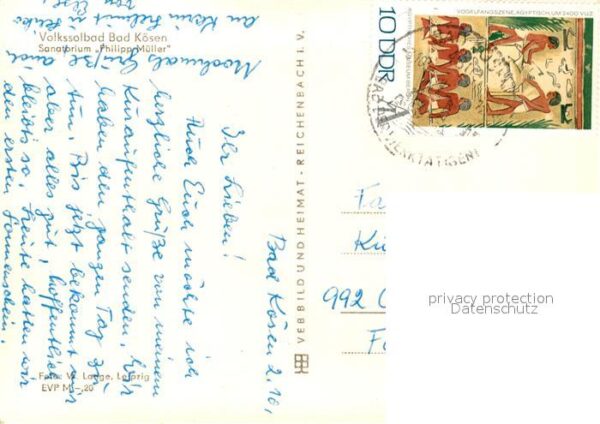 Volkssolbad Bad Kösen
Sanatorium „Philipp Müller"
Bad Kösen 2.10.
Ihr Lieben!
Auch Euch möchte ich
herzliche Grüße von meinem
Kuraufenthalt senden. Wir
haben den ganzen Tag zu
tun. Bis jetzt bekommt mir
aber alles gut, hoffentlich
bleibt's so. Heute hatten wir
den ersten Sonnenschein.
Nochmals Grüße auch
an Karin, Helmut u. Heiko
von
Foto: W. Lange, Leipzig
EVP M –,20
VEB BILD UND HEIMAT · REICHENBACH I. V.
VOGELFANGSZENE, ÄGYPTISCH UM 2400 VUZ
10 DDR
WERKTÄTIGEN
Fa
992
privacy protection
Datenschutz